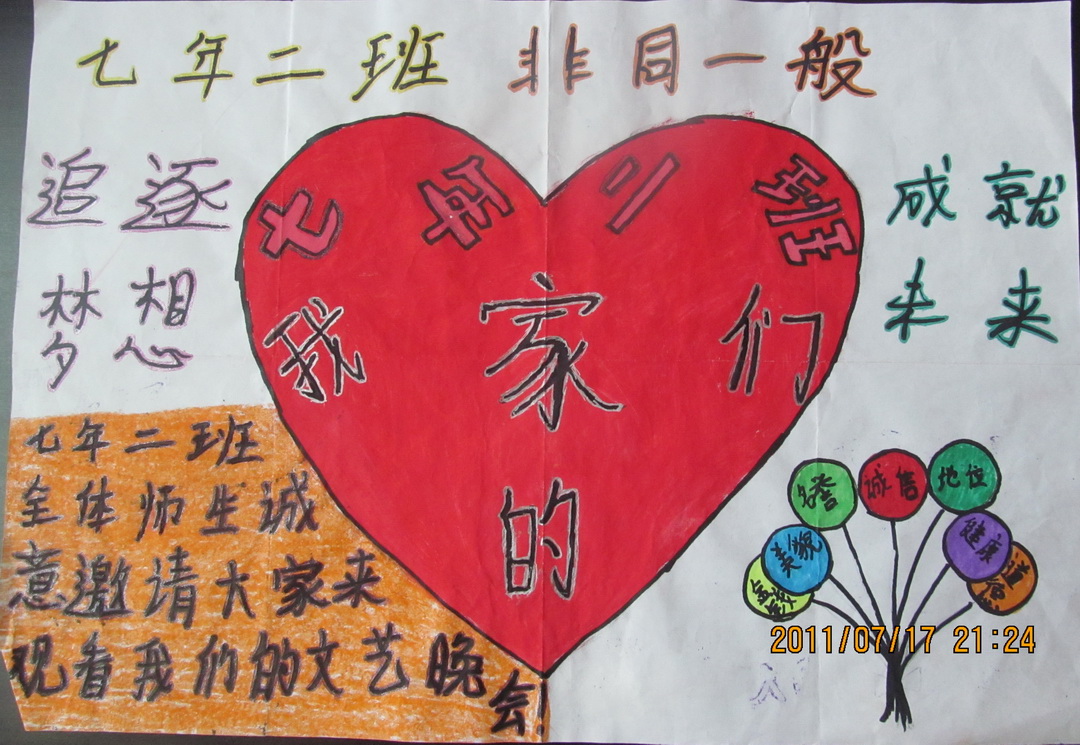 七年二班 非同一般
追逐
梦想
成就
未来
七年二班
我们
的
家
七年二班
全体师生诚
意邀请大家来
观看我们的文艺晚
会!
名誉
诚信
地位
美貌
健康
金钱
2011/07/17 21:24